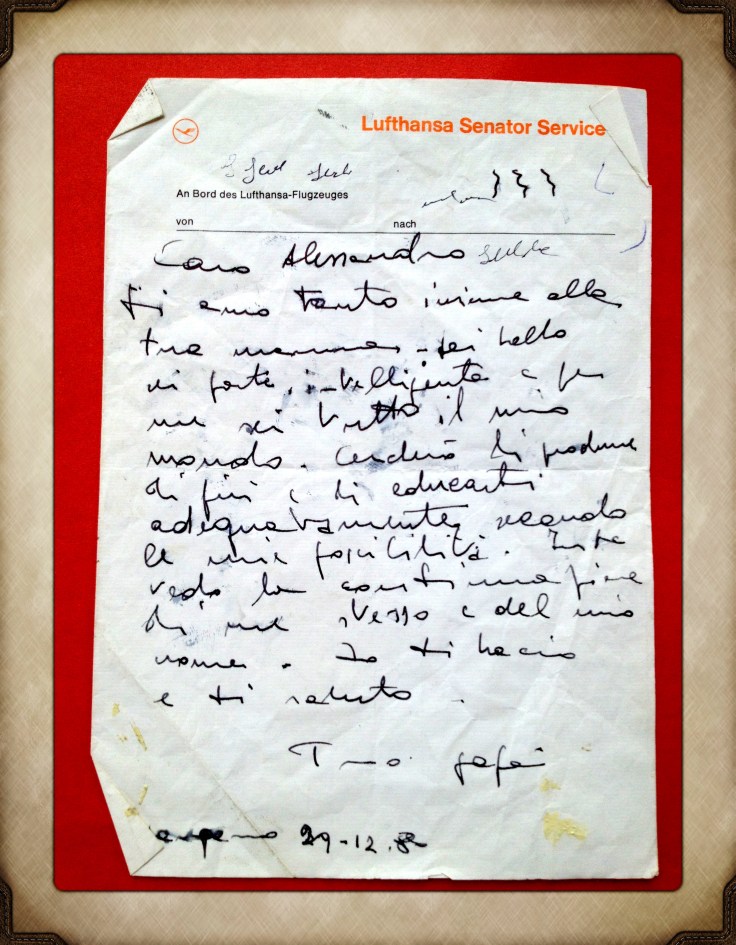 Lufthansa Senator Service
An Bord des Lufthansa-Flugzeuges
von nach
Caro Alessandro
Ti amo tanto insieme alla
tua mamma. sei bello
sei forte, intelligente e per
me sei tutto il mio
mondo. Cercherò di
di più e di educarti
adeguatamente, secondo
le mie possibilità. In te
vedo la continuazione
di me stesso e del mio
nome. Io ti bacio
e ti saluto.
Tuo papà
29-12.82